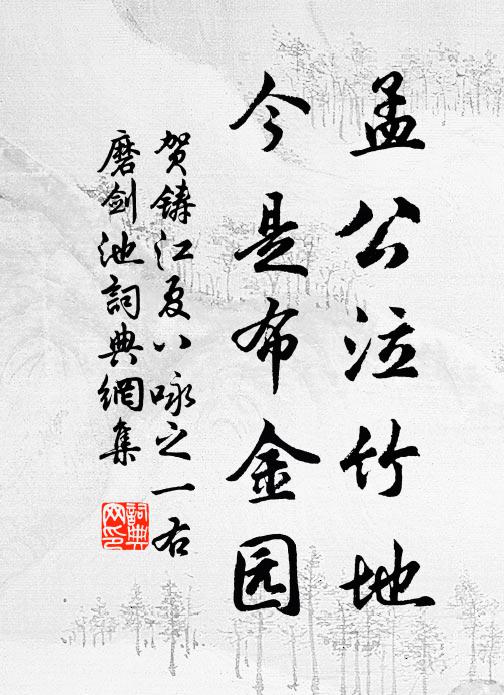 孟公泣竹地
今是布金园
贺铸江夏八咏之一右
磨剑池詞典網集
詞典
网印